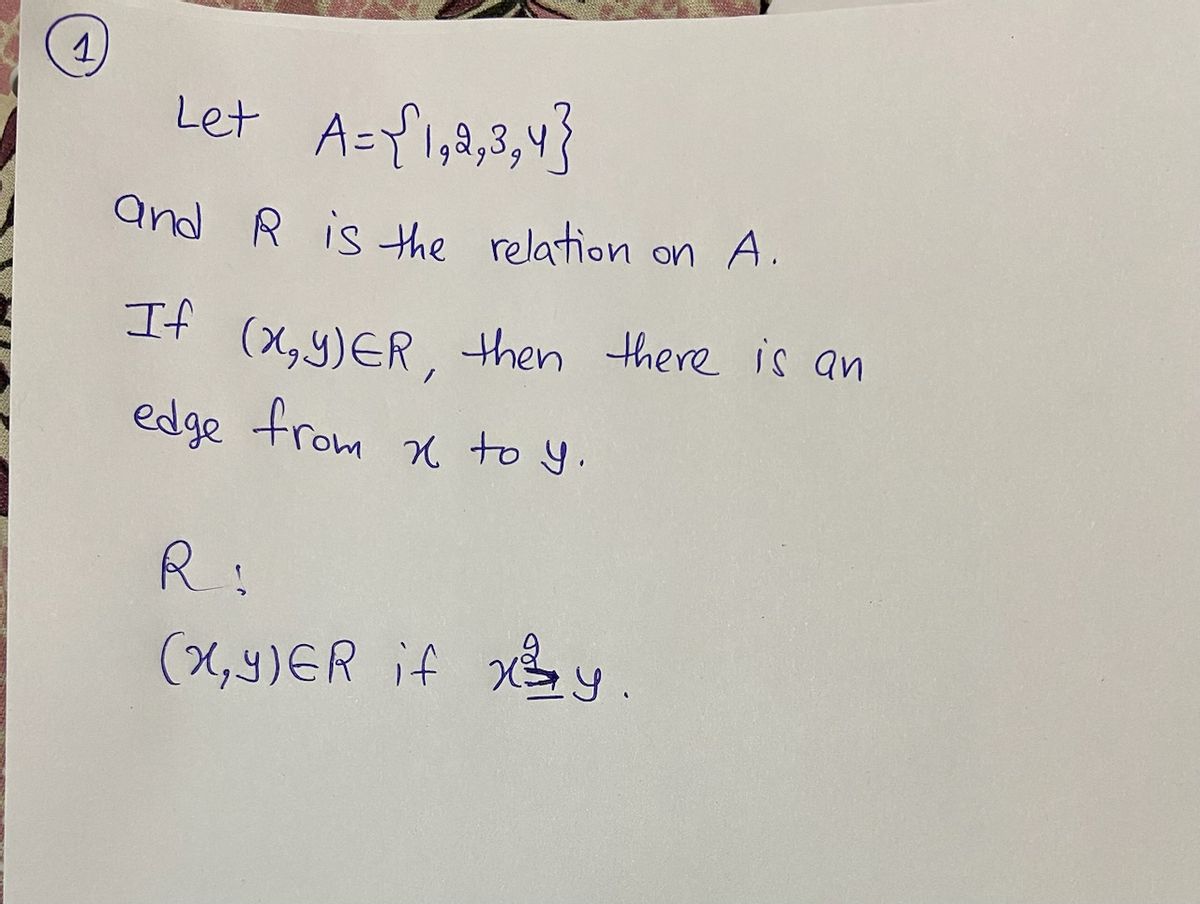 1
Let A={1,2,3,4}
and R is the relation on A.
If (x,y)∈R, then there is an
edge from x to y.
R:
(x,y)∈R if x² ≥ y.